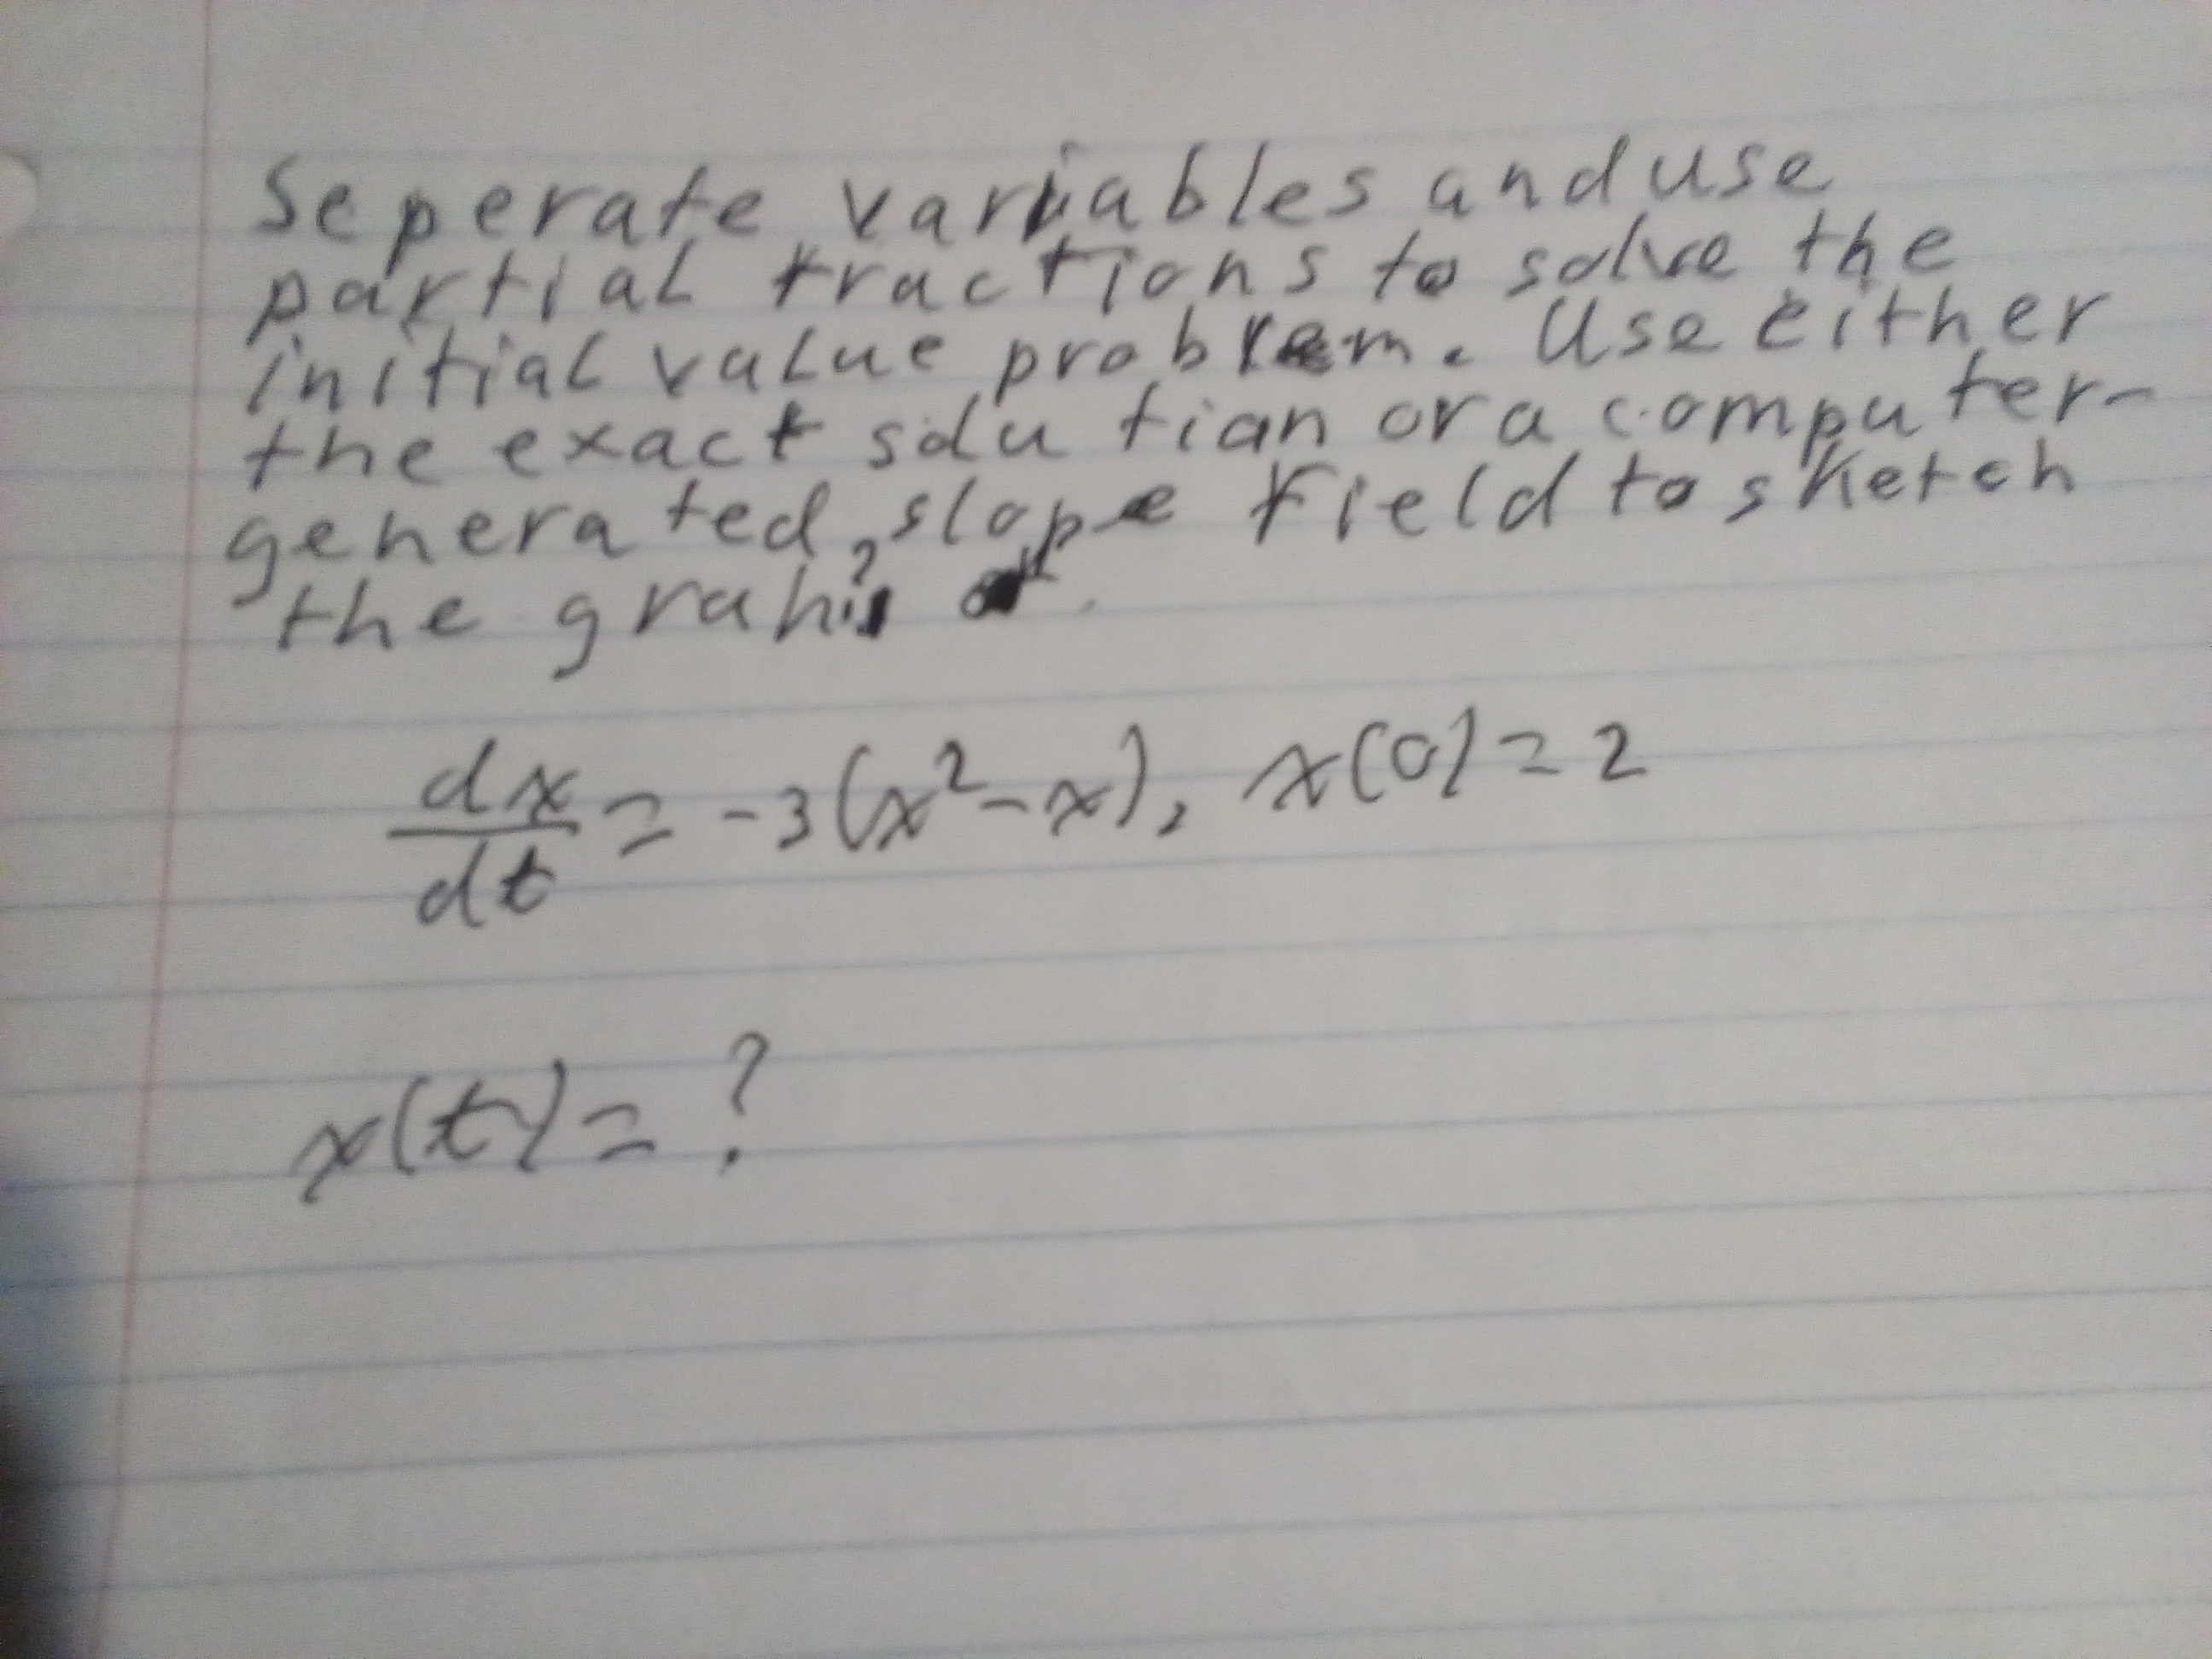 Seperate variables and use
partial fractions to solve the
initial value problem. Use either
the exact solution or a computer-
generated slope field to sketch
the
dx/dt = -3(x² - x), x(0) = 2
x(t) = ?